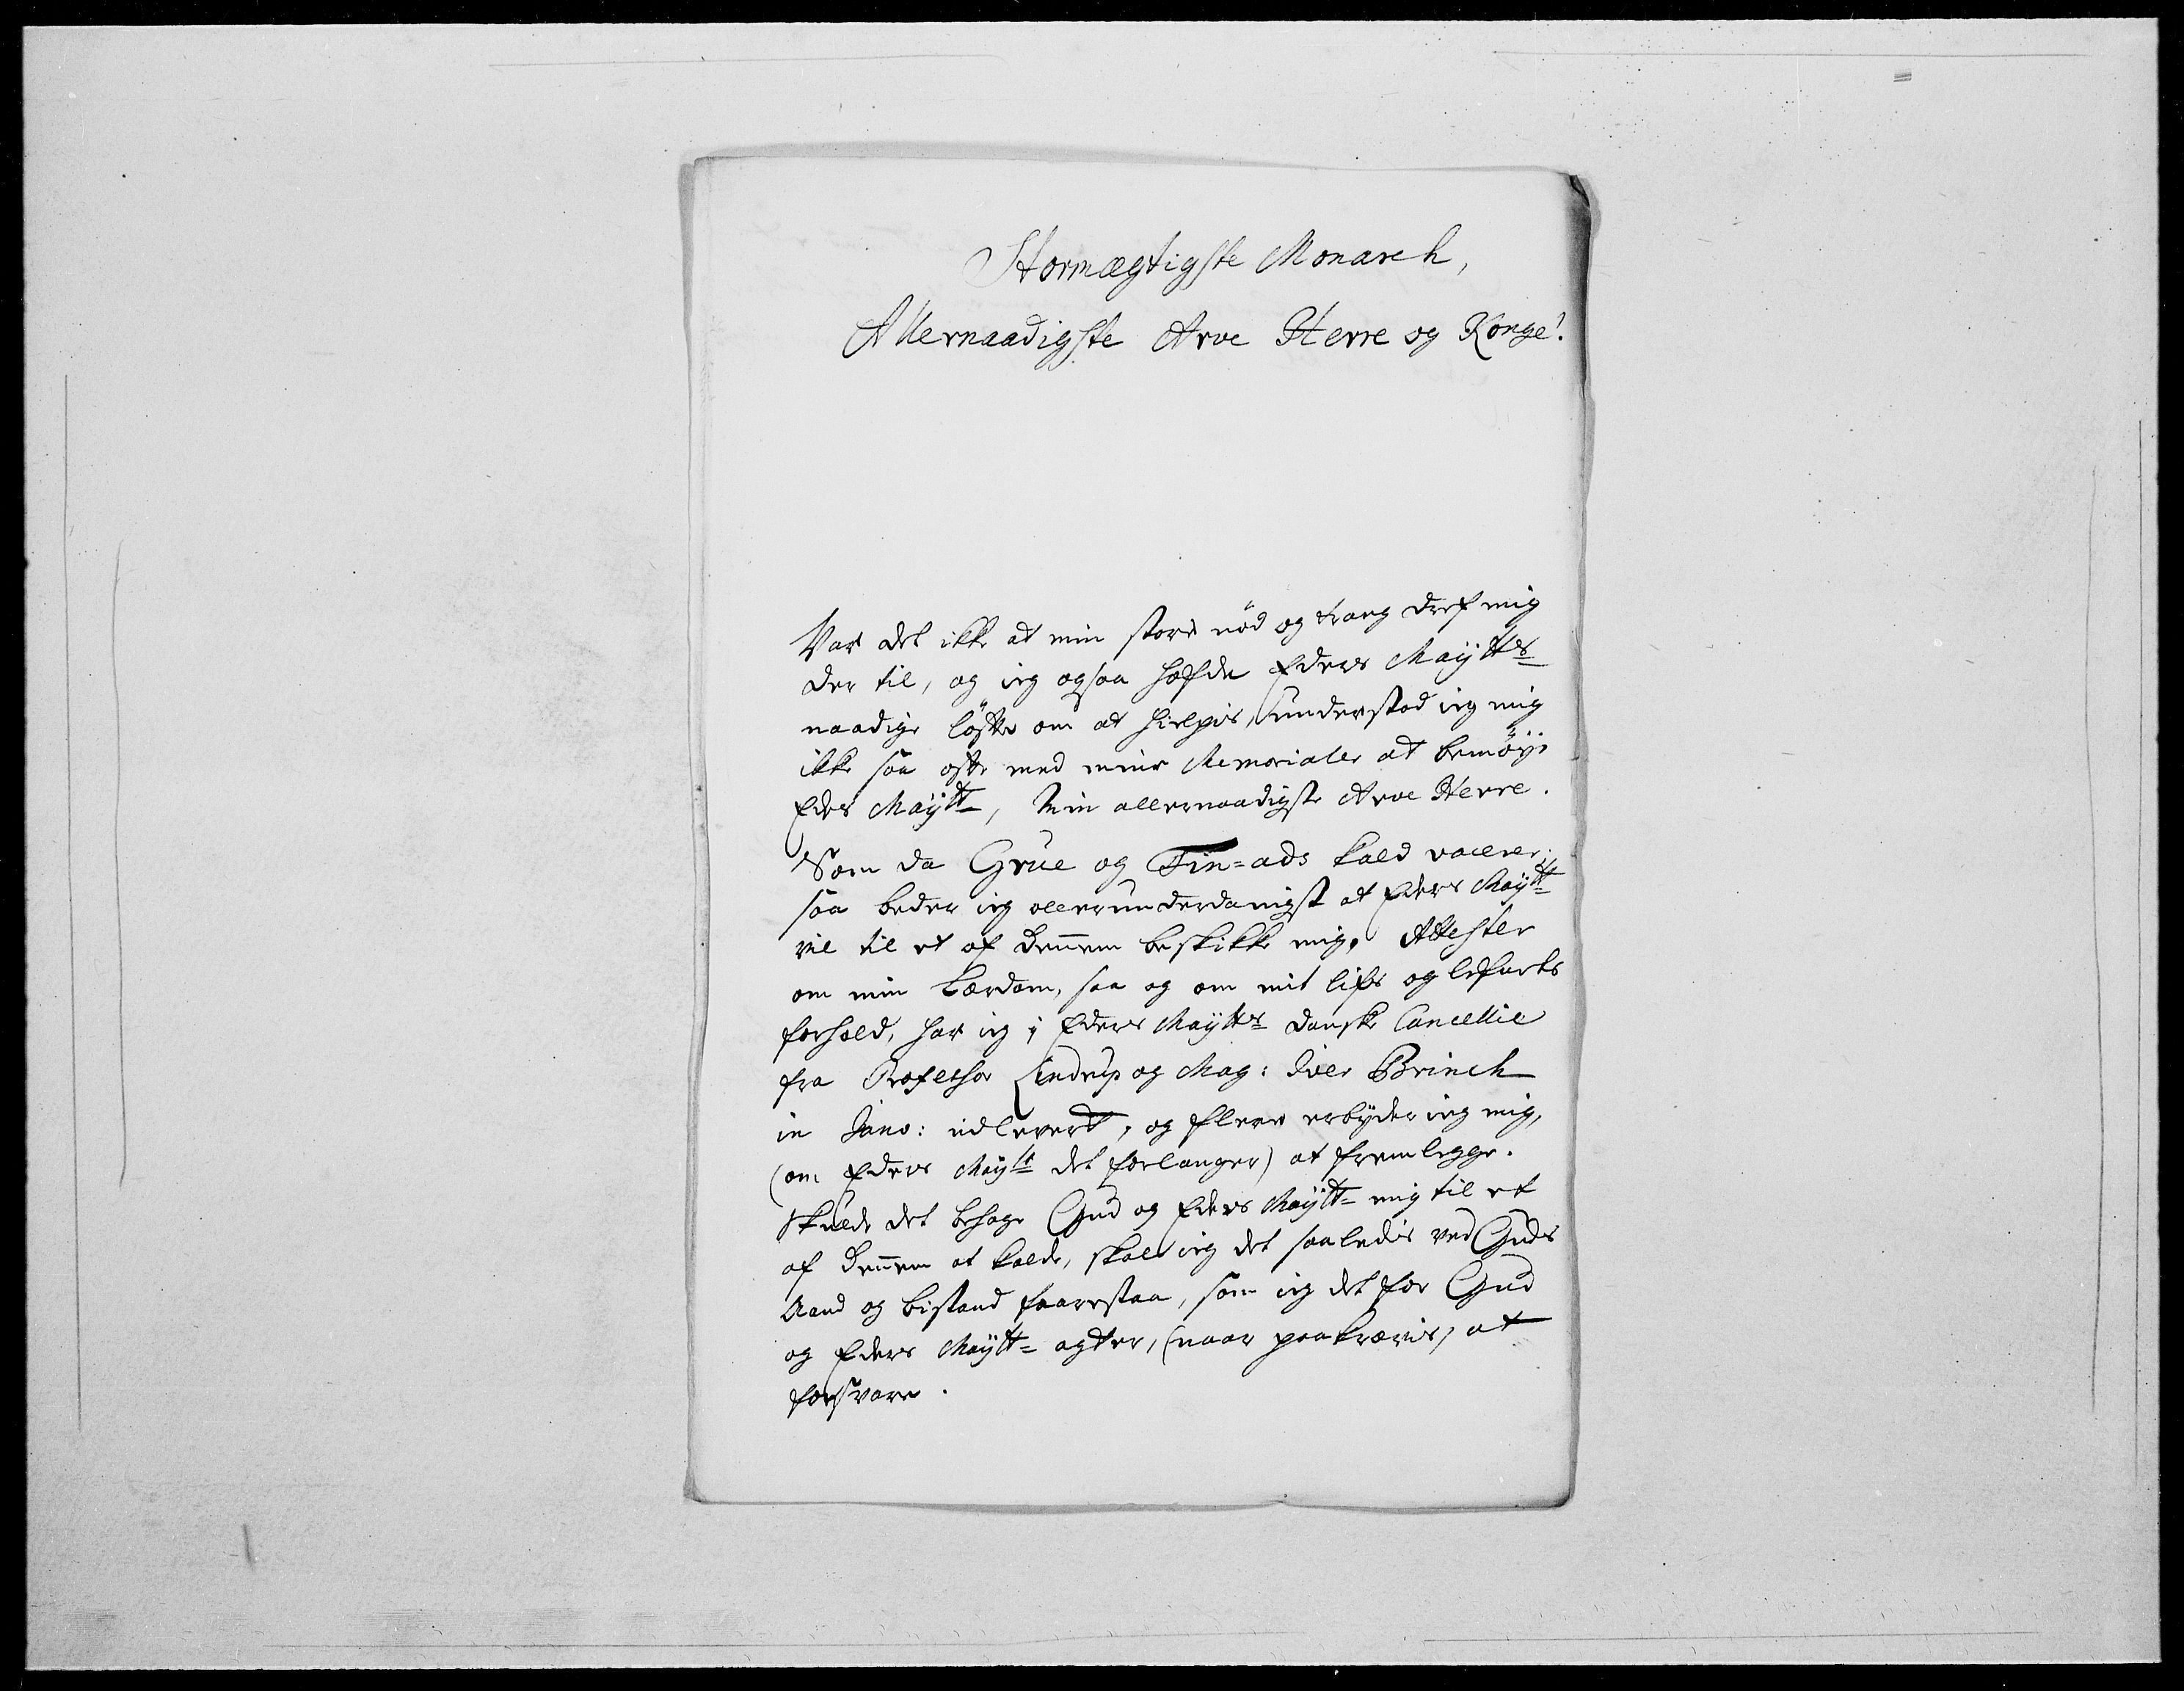 Stormægtigste Monarch,
Allernaadigste Arve Herre og Konge!
Var det ikke at min store nöd og trang dref mig
der til, og ieg ogsaa hafde Eders Maÿtts
naadige löfte om at hielpis, understod ieg mig
ikke saa ofte med mine Memorialer at bemöÿe
Eders Maÿtt, Min allernaadigste Arve Herre.
Som da Grue og Fin=ads kald vacerer,
saa beder ieg allerunderdanigst at Eders Maÿtt
vil til et af dennem beskikke mig. Attester
om min Lærdom, saa og om mit lifs og lefnets
forhold, har ieg i Eders Maÿtts danske Cancellie
fra Professor Lindrup og Mag: Iver Brinch
in Janv: udleveret, og flere erbÿder ieg mig,
(om Eders Maÿtt det forlanger) at fremlegge.
Skulde det behage Gud og Eders Maÿtt mig til et
af dennem at kalde, skal ieg det saaledis ved Guds
Aand og bistand forrestaa, som ieg det for Gud
og Eders Maÿtt agter, (naar paakrævis) at
forsvare.